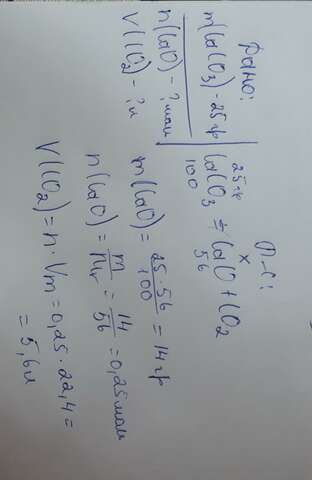 Дано:
m(CaCO₃) - 25 гр
n(CaO) - ? моль
V(CO₂) - ? л
П-С:
25 гр x
CaCO₃ = CaO + CO₂
100 56
m(CaO) = 25 · 56 / 100 = 14 гр
n(CaO) = m / Mr = 14 / 56 = 0,25 моль
V(CO₂) = n · Vm = 0,25 · 22,4 =
= 5,6 л